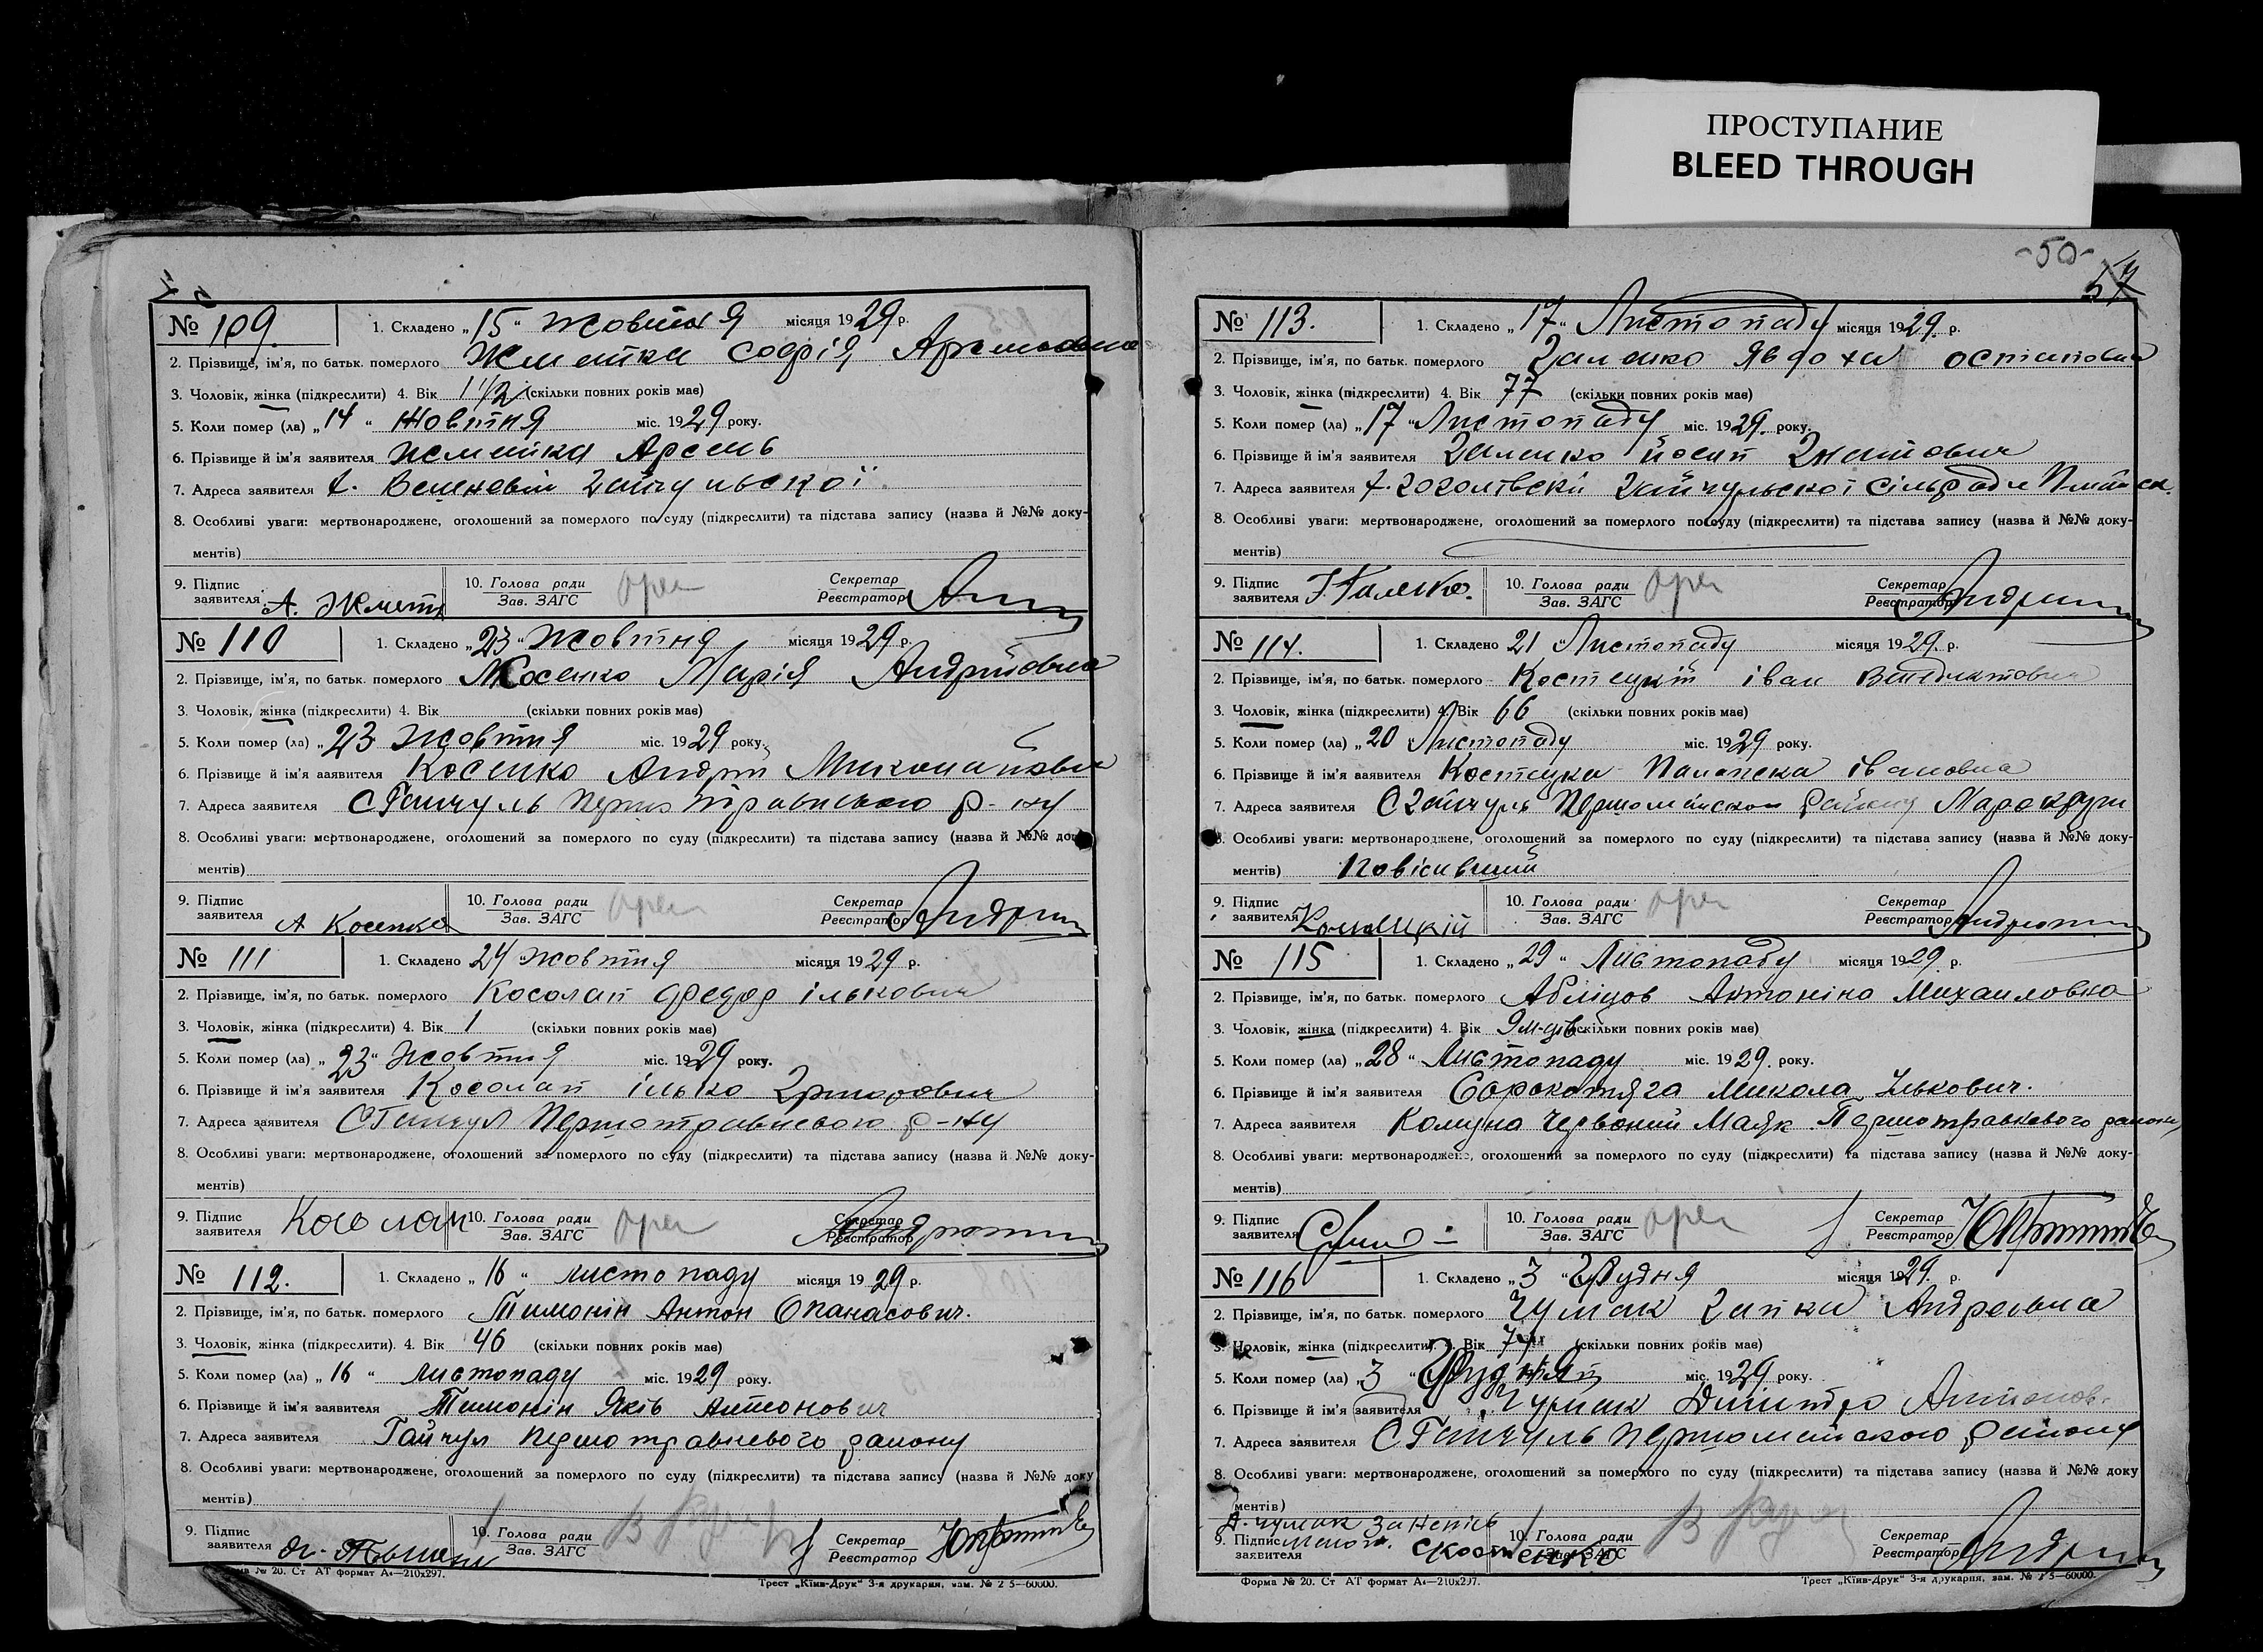 ПРОСТУПАНИЕ
BLEED THROUGH
№ 109.
1. Складено „15“ Жовтня місяця 1929 р.
2. Прізвище, ім'я, по батьк. померлого Жметка Софія
3. Чоловік, жінка (підкреслити) 4. Вік 1 1/2 (скільки повних років має)
5. Коли помер (ла) „14“ Жовтня міс. 1929 року.
6. Прізвище й ім'я заявителя Арсень
7. Адреса заявителя
8. Особливі уваги: мертвонароджене, оголошений за померлого по суду (підкреслити) та підстава запису (назва й №№ доку-
ментів)
9. Підпис заявителя А. 10. Голова ради Зав. ЗАГС Секретар Реєстратор
№ 110
1. Складено „23“ Жовтня місяця 1929 р.
2. Прізвище, ім'я, по батьк. померлого Косенко Марія Андріївна
3. Чоловік, жінка (підкреслити) 4. Вік (скільки повних років має)
5. Коли помер (ла) „23 Жовтня міс. 1929 року.
6. Прізвище й ім'я заявителя Косенко Андрій
7. Адреса заявителя С Гайчуль р-ну
8. Особливі уваги: мертвонароджене, оголошений за померлого по суду (підкреслити) та підстава запису (назва й №№ доку-
ментів)
9. Підпис заявителя А Косенко 10. Голова ради Зав. ЗАГС Секретар Реєстратор
№ 111
1. Складено 24 Жовтня місяця 1929 р.
2. Прізвище, ім'я, по батьк. померлого Косолап Федор Ількович
3. Чоловік, жінка (підкреслити) 4. Вік 1 (скільки повних років має)
5. Коли помер (ла) „23“ Жовтня міс. 1929 року.
6. Прізвище й ім'я заявителя Косолап Ілько
7. Адреса заявителя С Гайчул Першотравневого р-ну
8. Особливі уваги: мертвонароджене, оголошений за померлого по суду (підкреслити) та підстава запису (назва й №№ доку-
ментів)
9. Підпис заявителя Косолап 10. Голова ради Зав. ЗАГС Секретар Реєстратор
№ 112.
1. Складено „16“ листопаду місяця 1929 р.
2. Прізвище, ім'я, по батьк. померлого Тимонін Антон Опанасович.
3. Чоловік, жінка (підкреслити). 4. Вік 46 (скільки повних років має)
5. Коли помер (ла) „16“ листопаду міс. 1929 року.
6. Прізвище й ім'я заявителя Тимонін Яків Антонович
7. Адреса заявителя Гайчул Першотравневого району
8. Особливі уваги: мертвонароджене, оголошений за померлого по суду (підкреслити) та підстава запису (назва й №№ доку
ментів)
9. Підпис заявителя 10. Голова ради Зав. ЗАГС Секретар Реєстратор
Форма № 20. Ст АТ формат А4—210х297.
Трест „Київ-Друк“ 3-я друкарня, зам. № 2 5—60000.
-50-
№ 113.
1. Складено „17“ Листопаду місяця 1929. р.
2. Прізвище, ім'я, по батьк. померлого Галенко Явдоха Остаповна
3. Чоловік, жінка (підкреслити) 4. Вік 77 (скільки повних років має)
5. Коли помер (ла) „17“ Листопаду міс. 1929. року.
6. Прізвище й ім'я заявителя Галенко Йосип
7. Адреса заявителя Гайчульської сільради
8. Особливі уваги: мертвонароджене, оголошений за померлого по суду (підкреслити) та підстава запису (назва й №№ доку-
ментів)
9. Підпис заявителя Й. Галенко. 10. Голова ради Зав. ЗАГС Секретар Реєстратор
№ 114.
1. Складено 21 „Листопаду місяця 1929. р.
2. Прізвище, ім'я, по батьк. померлого Костецкій іван
3. Чоловік, жінка (підкреслити) 4. Вік 66 (скільки повних років має)
5. Коли помер (ла) „20“ Листопаду міс. 1929 року.
6. Прізвище й ім'я заявителя Костецка івановна
7. Адреса заявителя С Гайчуль Першомайского району
8. Особливі уваги: мертвонароджене, оголошений за померлого по суду (підкреслити) та підстава запису (назва й №№ доку-
ментів) Повісивший
9. Підпис заявителя 10. Голова ради Зав. ЗАГС Секретар Реєстратор
№ 115
1. Складено „29“ Листопаду місяця 1929. р.
2. Прізвище, ім'я, по батьк. померлого Абліцов Антоніна Михаиловна
3. Чоловік, жінка (підкреслити) 4. Вік 9 м-ців (скільки повних років має)
5. Коли помер (ла) „28“ Листопаду міс. 1929. року.
6. Прізвище й ім'я заявителя Сорокотяга Микола Ількович.
7. Адреса заявителя Комуна Червоний Маяк Першотравневого району
8. Особливі уваги: мертвонароджене, оголошений за померлого по суду (підкреслити) та підстава запису (назва й №№ доку-
ментів)
9. Підпис заявителя 10. Голова ради Зав. ЗАГС Секретар Реєстратор
№ 116
1. Складено „3“ Грудня місяця 1929. р.
2. Прізвище, ім'я, по батьк. померлого Чумак Ганка Андреевна
3. Чоловік, жінка (підкреслити) 4. Вік (скільки повних років має)
5. Коли помер (ла) „3“ Грудня міс. 1929 року.
6. Прізвище й ім'я заявителя Чумак Димитро Антонов.
7. Адреса заявителя С Гайчуль Першомайского району
8. Особливі уваги: мертвонароджене, оголошений за померлого по суду (підкреслити) та підстава запису (назва й №№ доку
ментів)
9. Підпис заявителя 10. Голова ради Зав. ЗАГС Секретар Реєстратор
Форма № 20. Ст АТ формат А4—210х297.
Трест „Київ-Друк“ 3-я друкарня, зам. № 2 5—60000.